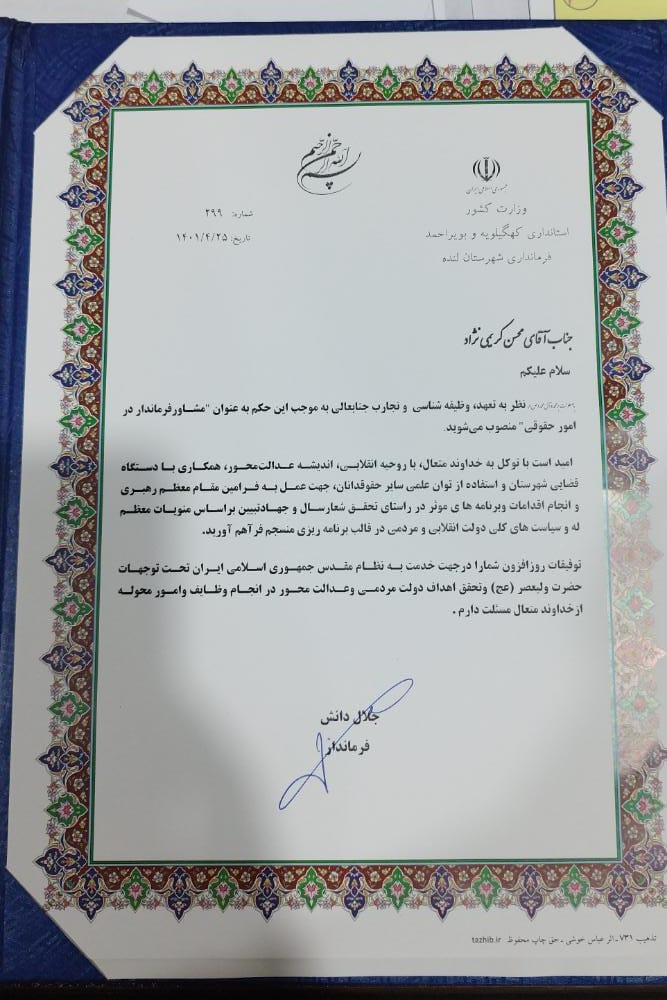 بسم الله الرحمن الرحیم
جمهوری اسلامی ایران
وزارت کشور
استانداری کهگیلویه و بویراحمد
فرمانداری شهرستان لنده
شماره: ۲۹۹
تاریخ: ۱۴۰۱/۴/۲۵
جناب آقای محسن کریمی نژاد
سلام علیکم
نظر به تعهد، وظیفه شناسی و تجارب جنابعالی به موجب این حکم به عنوان "مشاورفرماندار در
امور حقوقی" منصوب می‌شوید.
امید است با توکل به خداوند متعال، با روحیه انقلابی، اندیشه عدالت‌محور، همکاری با دستگاه
قضایی شهرستان و استفاده از توان علمی سایر حقوقدانان، جهت عمل به فرامین مقام معظم رهبری
و انجام اقدامات وبرنامه ها ی موثر در راستای تحقق شعارسال و جهادتبیین براساس منویات معظم
له و سیاست های کلی دولت انقلابی و مردمی در قالب برنامه ریزی منسجم فرآهم آورید.
توفیقات روزافزون شمارا درجهت خدمت به نظام مقدس جمهوری اسلامی ایران تحت توجهات
حضرت ولیعصر (عج) وتحقق اهداف دولت مردمی وعدالت محور در انجام وظایف وامور محوله
ازخداوند متعال مسئلت دارم .
جلال دانش
فرماندار
تذهیب ۷۳۱ - اثر عباس خوشی - حق چاپ محفوظ tazhib.ir